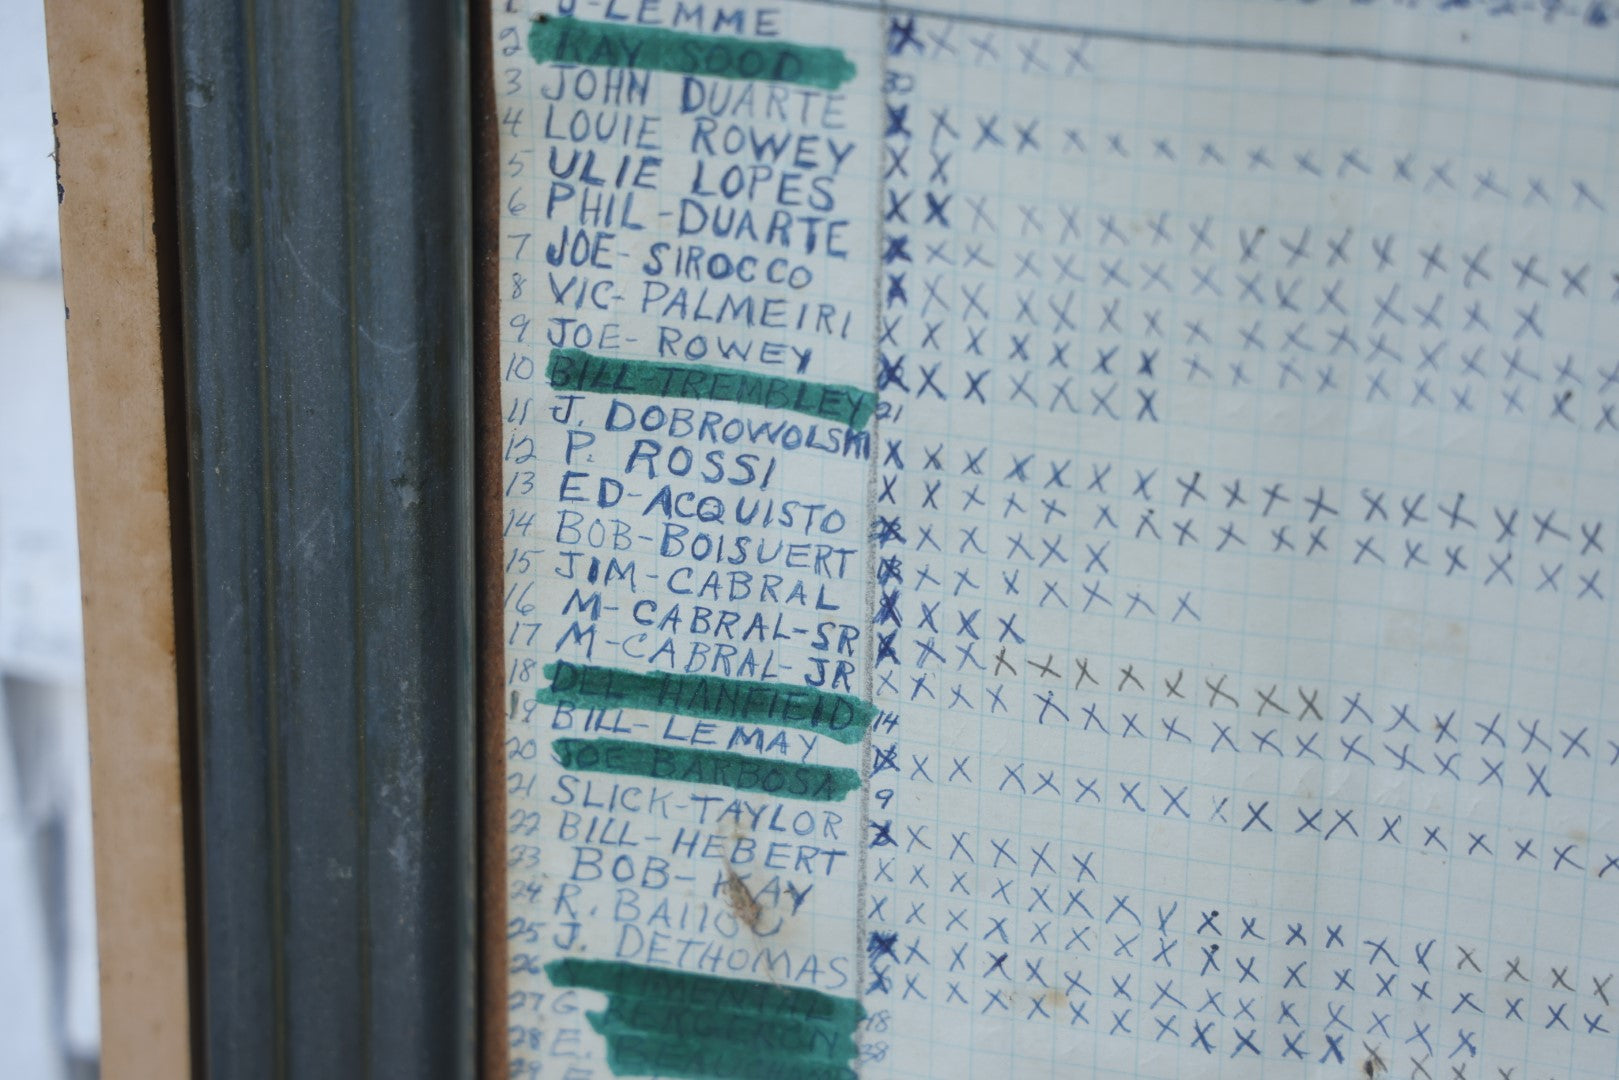 1 J-LEMME
2 KAY SOOD X X X X X
3 JOHN DUARTE 30
4 LOUIE ROWEY X X X X X X X X X X X X X X X X
5 ULIE LOPES X X
6 PHIL-DUARTE X X X X X X X X X X X X X X X X
7 JOE-SIROCCO X X X X X X X X X X X X X X X
8 VIC-PALMEIRI X X X X X X X X X X X X X X X X
9 JOE-ROWEY X X X X X X X X X X X X X X X X
10 BILL-TREMBLEY X X X X X X X
11 J. DOBROWOLSKI 21
12 P. ROSSI X X X X X X X X X X X X X X X X
13 ED-ACQUISTO X X X X X X X X X X X X X X X X
14 BOB-BOISVERT X X X X X X
15 JIM-CABRAL X X X X X X X X
16 M-CABRAL-SR X X X X
17 M-CABRAL-JR X X X X X X X X X X X X X X X X
18 DEL HANFIELD X X X X X X X X X X X X X X X
19 BILL-LEMAY 14
20 JOE BARBOSA X X X X X X X X X X X X X X X X
21 SLICK-TAYLOR 9
22 BILL-HEBERT X X X X X X
23 BOB-KAY X X X X X X X X X X X X X X X X
24 R. X X X X X X X X X X X X X X X X
25 J. DETHOMAS X X X X X X X X X X X X X X X X
26 X X X X X X X X X X X X X X
27 G 18
28 E. 38
29 E